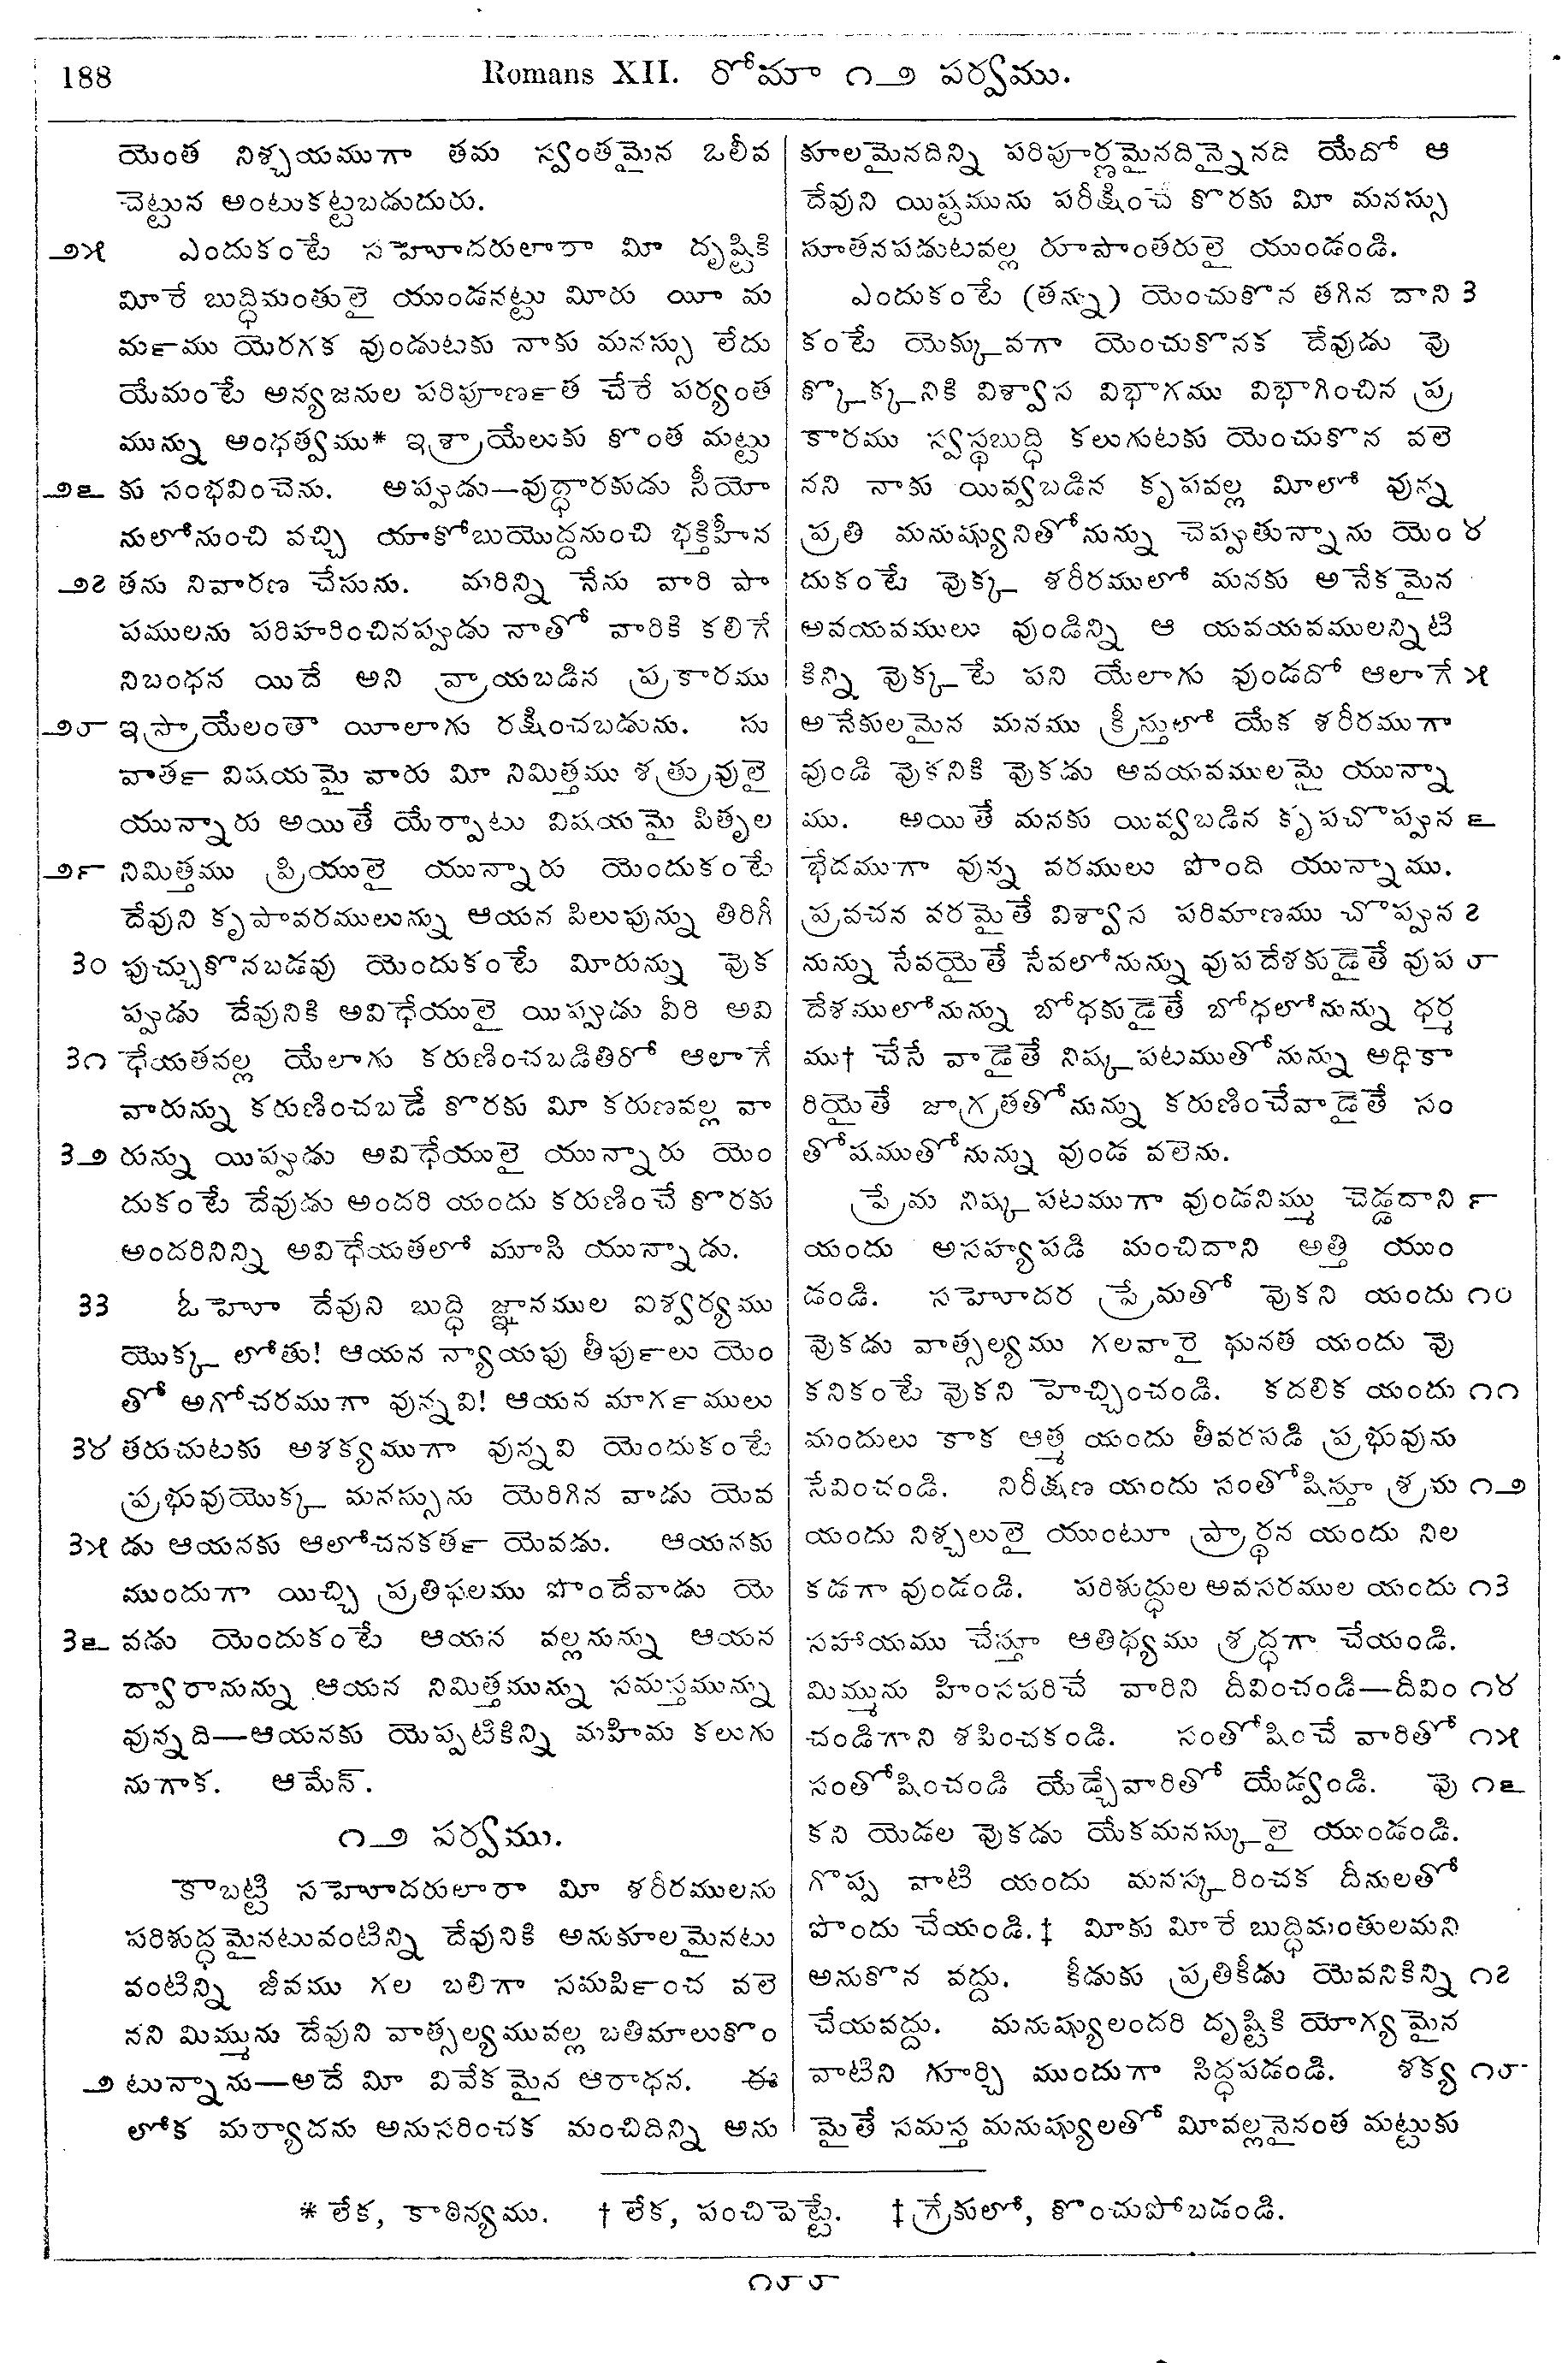 188
Romans XII. రోమా ౧౨ పర్వము.
యెంత నిశ్చయముగా తమ స్వంతమైన ఒలీవ
చెట్టున అంటుకట్టబడుదురు.
౨౫ ఎందుకంటే సహోదరులారా మీ దృష్టికి
మీరే బుద్ధిమంతులై యుండనట్టు మీరు యీ మ
మ౯ము యెరగక వుండుటకు నాకు మనస్సు లేదు
యేమంటే అన్యజనుల పరిపూణ౯త చేరే పర్యంత
మున్ను అంధత్వము* ఇశ్రాయేలుకు కొంత మట్టు
౨౬ కు సంభవించెను. అప్పుడు—వుద్ధారకుడు సీయో
నులోనుంచి వచ్చి యాకోబుయొద్దనుంచి భక్తిహీన
౨౭ తను నివారణ చేసును. మరిన్ని నేను వారి పా
పములను పరిహరించినప్పుడు నాతో వారికి కలిగే
నిబంధన యిదే అని వ్రాయబడిన ప్రకారము
౨౮ ఇస్రాయేలంతా యీలాగు రక్షించబడును. సు
వాత౯ విషయమై వారు మీ నిమిత్తము శత్రువులై
యున్నారు అయితే యేర్పాటు విషయమై పితృల
౨౯ నిమిత్తము ప్రియులై యున్నారు యెందుకంటే
దేవుని కృపావరములున్ను ఆయన పిలుపున్ను తిరిగీ
౩౦ పుచ్చుకొనబడవు యెందుకంటే మీరున్ను వొక
ప్పుడు దేవునికి అవిధేయులై యిప్పుడు వీరి అవి
౩౧ ధేయతవల్ల యేలాగు కరుణించబడితిరో ఆలాగే
వారున్ను కరుణించబడే కొరకు మీ కరుణవల్ల వా
౩౨ రున్ను యిప్పుడు అవిధేయులై యున్నారు యెం
దుకంటే దేవుడు అందరి యందు కరుణించే కొరకు
అందరినిన్ని అవిధేయతలో మూసి యున్నాడు.
౩౩ ఓహో దేవుని బుద్ధి జ్ఞానముల ఐశ్వర్యము
యొక్క లోతు! ఆయన న్యాయపు తీపు౯లు యెం
తో అగోచరముగా వున్నవి! ఆయన మాగ౯ములు
౩౪ తరుచుటకు అశక్యముగా వున్నవి యెందుకంటే
ప్రభువుయొక్క మనస్సును యెరిగిన వాడు యెవ
౩౫ డు ఆయనకు ఆలోచనకత౯ యెవడు. ఆయనకు
ముందుగా యిచ్చి ప్రతిఫలము పొందేవాడు యె
౩౬ వడు యెందుకంటే ఆయన వల్లనున్ను ఆయన
ద్వారానున్ను ఆయన నిమిత్తమున్ను సమస్తమున్ను
వున్నది—ఆయనకు యెప్పటికిన్ని మహిమ కలుగు
నుగాక. ఆమేన్.
౧౨ పర్వము.
కాబట్టి సహోదరులారా మీ శరీరములను
పరిశుద్ధమైనటువంటిన్ని దేవునికి అనుకూలమైనటు
వంటిన్ని జీవము గల బలిగా సమపి౯ంచ వలె
నని మిమ్మును దేవుని వాత్సల్యమువల్ల బతిమాలుకొం
౨ టున్నాను—అదే మీ వివేకమైన ఆరాధన. ఈ
లోక మర్యాదను అనుసరించక మంచిదిన్ని అను
కూలమైనదిన్ని పరిపూర్ణమైనదిన్నైనది యేదో ఆ
దేవుని యిష్టమును పరీక్షించే కొరకు మీ మనస్సు
నూతనపడుటవల్ల రూపాంతరులై యుండండి.
ఎందుకంటే (తన్ను) యెంచుకొన తగిన దాని ౩
కంటే యెక్కువగా యెంచుకొనక దేవుడు వొ
క్కొక్కనికి విశ్వాస విభాగము విభాగించిన ప్ర
కారము స్వస్థబుద్ధి కలుగుటకు యెంచుకొన వలె
నని నాకు యివ్వబడిన కృపవల్ల మీలో వున్న
ప్రతి మనుష్యునితోనున్ను చెప్పుతున్నాను యెం ౪
దుకంటే వొక్క శరీరములో మనకు అనేకమైన
అవయవములు వుండిన్ని ఆ యవయవములన్నిటి
కిన్ని వొక్కటే పని యేలాగు వుండదో ఆలాగే ౫
అనేకులమైన మనము క్రీస్తులో యేక శరీరముగా
వుండి వొకనికి వొకడు ఆవయవములమై యున్నా
ము. అయితే మనకు యివ్వబడిన కృపచొప్పున ౬
భేదముగా వున్న వరములు పొంది యున్నాము.
ప్రవచన వరమైతే విశ్వాస పరిమాణము చొప్పున ౭
నున్ను సేవయైతే సేవలోనున్ను వుపదేశకుడైతే వుప ౮
దేశములోనున్ను బోధకుడైతే బోధలోనున్ను ధర్మ
ము† చేసే వాడైతే నిష్కపటముతోనున్ను అధికా
రియైతే జాగ్రతతోనున్ను కరుణించేవాడైతే సం
తోషముతోనున్ను వుండ వలెను.
ప్రేమ నిష్కపటముగా వుండనిమ్ము చెడ్డదాని ౯
యందు అసహ్యపడి మంచిదాని అత్తి యుం
డండి. సహోదర ప్రేమతో వొకని యందు ౧౦
వొకడు వాత్సల్యము గలవారై ఘనత యందు వొ
కనికంటే వొకని హెచ్చించండి. కదలిక యందు ౧౧
మందులు కాక ఆత్మ యందు తీవరపడి ప్రభువును
సేవించండి. నిరీక్షణ యందు సంతోషిస్తూ శ్రమ ౧౨
యందు నిశ్చలులై యుంటూ ప్రార్థన యందు నిల
కడగా వుండండి. పరిశుద్ధుల అవసరముల యందు ౧౩
సహాయము చేస్తూ ఆతిథ్యము శ్రద్ధగా చేయండి.
మిమ్మును హింసపరిచే వారిని దీవించండి—దీవిం ౧౪
చండిగాని శపించకండి. సంతోషించే వారితో ౧౫
సంతోషించండి యేడ్చేవారితో యేడ్వండి. వొ ౧౬
కని యెడల వొకడు యేకమనస్కులై యుండండి.
గొప్ప వాటి యందు మనస్కరించక దీనులతో
పొందు చేయండి.‡ మీకు మీరే బుద్ధిమంతులమని
అనుకొన వద్దు. కీడుకు ప్రతికీడు యెవనికిన్ని ౧౭
చేయవద్దు. మనుష్యులందరి దృష్టికి యోగ్యమైన
వాటిని గూర్చి ముందుగా సిద్ధపడండి. శక్య ౧౮
మైతే సమస్త మనుష్యులతో మీవల్లనైనంత మట్టుకు
* లేక, కాఠిన్యము. † లేక, పంచిపెట్టే. ‡ గ్రేకులో, కొంచుపోబడండి.
౧౮౮